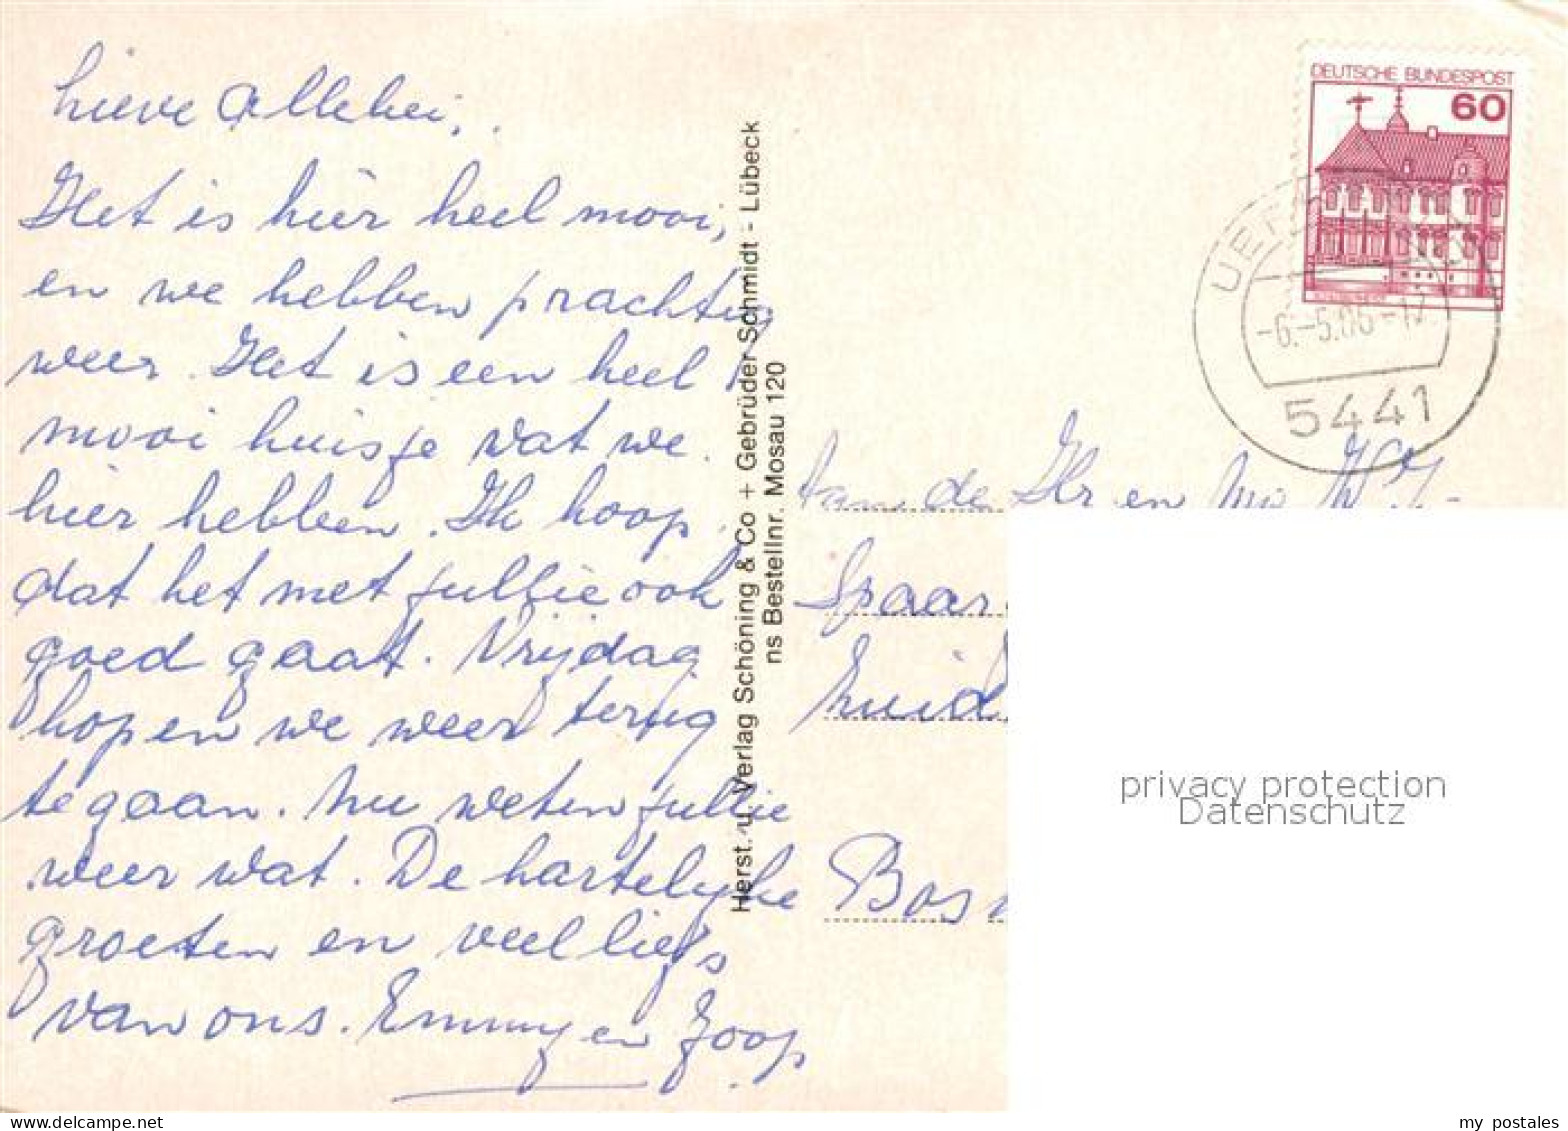 Lieve Allebei,
Het is hier heel mooi,
en we hebben prachtig
weer. Het is een heel
mooi huisje wat we
hier hebben. Ik hoop
dat het met jullie ook
goed gaat. Vrijdag
hopen we weer terug
te gaan. Nu weten jullie
weer wat. De hartelijke
groeten en veel liefs
van ons. Emmy en Joop
Herst. u. Verlag Schöning & Co + Gebrüder Schmidt - Lübeck
ns Bestellnr. Mosau 120
DEUTSCHE BUNDESPOST
60
5441
Aan de Hr en
Spaar
Zuid
Bos
privacy protection
Datenschutz
my postales